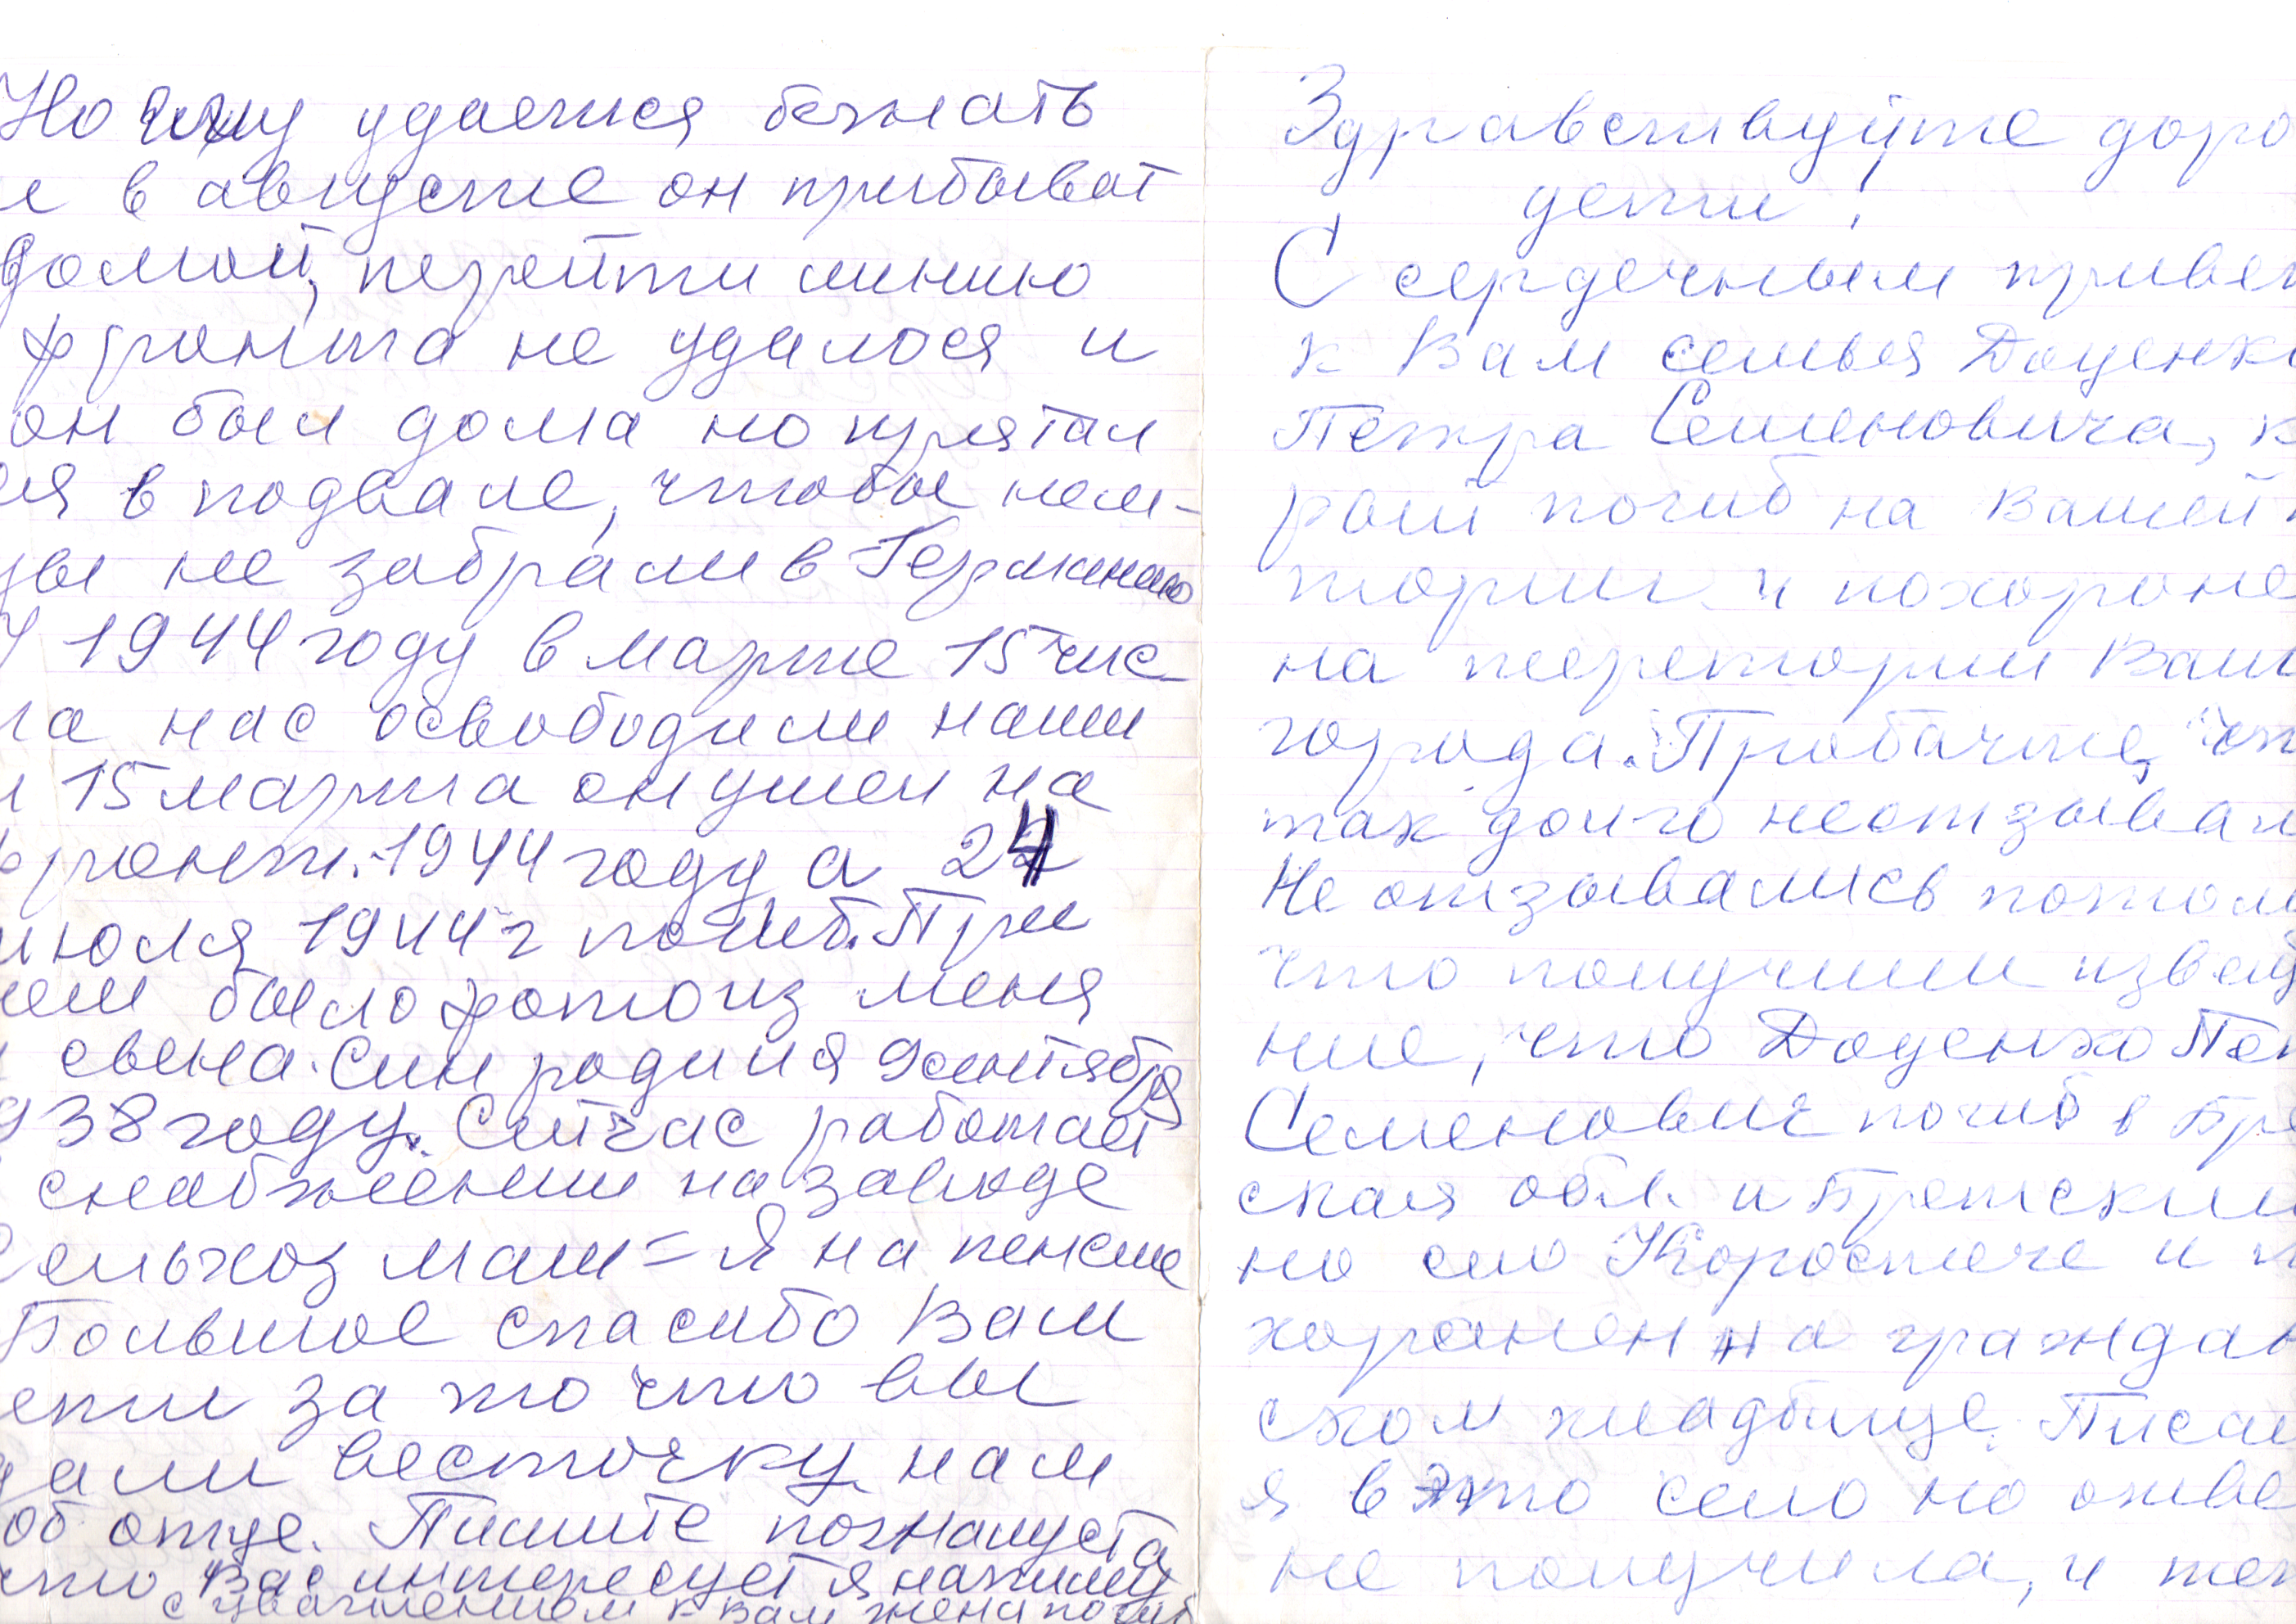 Но ему удается бежать
и в августе он прибыват
домой, перейти линию
фронта не удалося и
он был дома но прятал
ся в подвале, чтобы нем-
цы не забрали в Германию
У 1944 году в марте 15 чис
ла нас освободили наши
и 15 марта он ушел на
фронт. 1944 году а 24
июля 1944 г погиб. При
нем было фото из меня
и свена. Син родился 9 сентября
38 году. Сейчас работает
снабжении на заводе
Сельхоз маш = Я на пенсие
Большое спасибо Вам
ети за то что вы
дали весточку нам
об отце. Пишите пожалуста
что Вас интересует я напишу
с уважением к вам жена погиб
Здравствуйте доро
дети!
С сердечным привет
к Вам семья Доценко
Петра Семеновича, к
рый погиб на вашей
тории и похороне
на територии Ваш
города. Пробачте, что
так долго неотзывал
Не отзывались потом
что получили извещ
ние, что Доценко Пет
Семенович погиб в Бре
ская обл. и Бретский
но сло Коростиче и п
харанен на граждан
ском кладбище. Писал
я в это село но отве
не получила, и теп